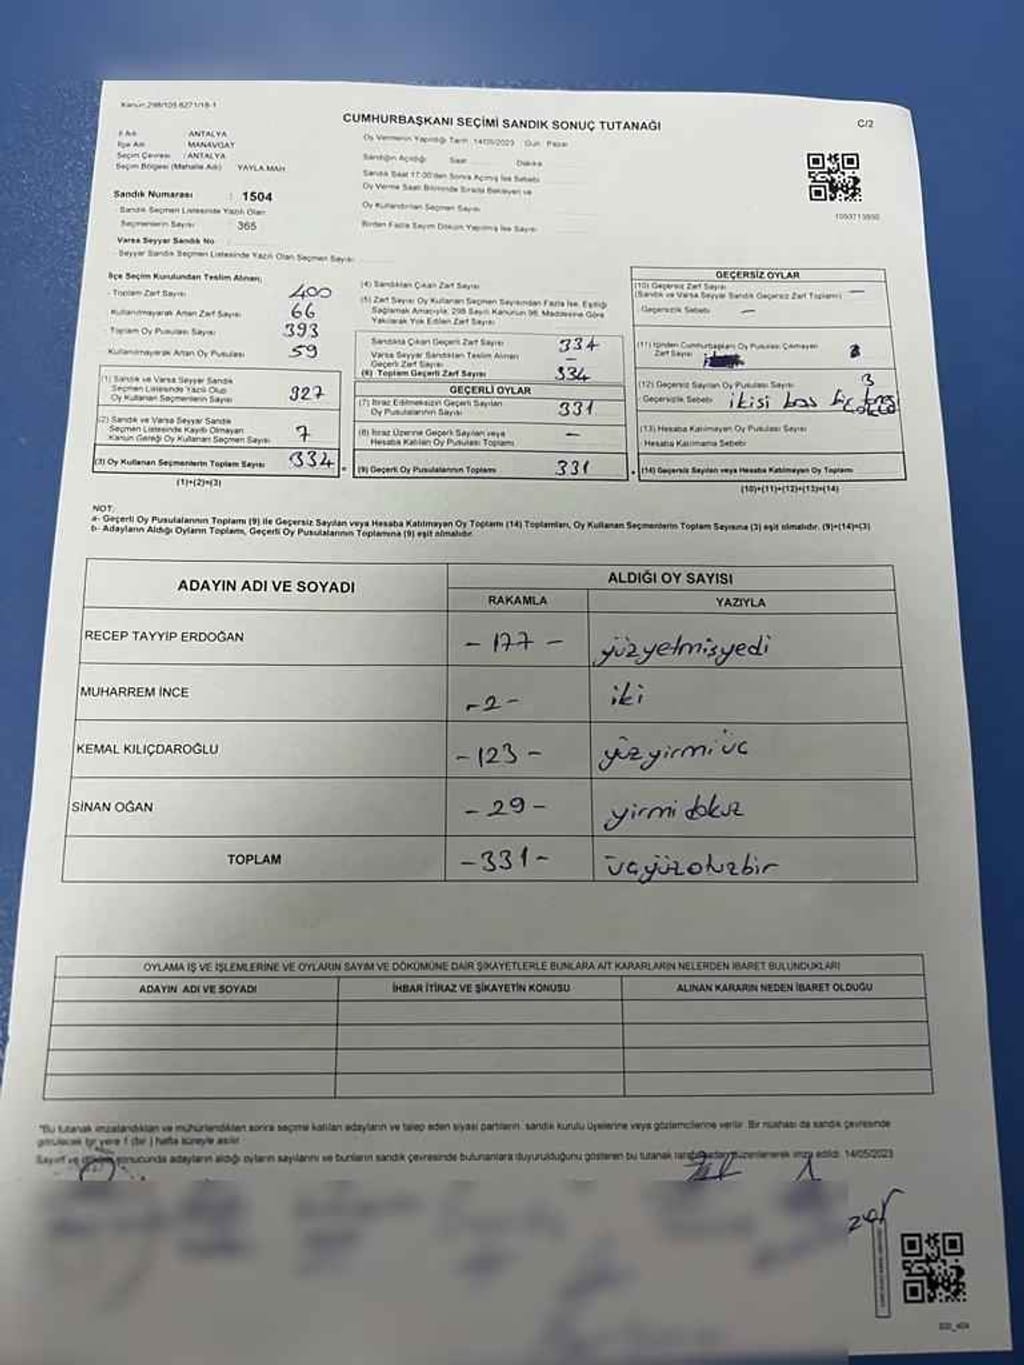 Kanun:298/105 6271/18-1
CUMHURBAŞKANI SEÇİMİ SANDIK SONUÇ TUTANAĞI
C/2
İl Adı ANTALYA
İlçe Adı MANAVGAT
Seçim Çevresi : ANTALYA
Seçim Bölgesi (Mahalle Adı) YAYLA MAH
Oy Vermenin Yapıldığı Tarih 14/05/2023 Gün: Pazar
Sandığın Açıldığı Saat Dakika
Sandık Saat 17:00'den Sonra Açılmış İse Sebebi
Oy Verme Saati Bitiminde Sırada Bekleyen ve
Oy Kullandırılan Seçmen Sayısı
Birden Fazla Sayım Döküm Yapılmış İse Sayısı
Sandık Numarası : 1504
Sandık Seçmen Listesinde Yazılı Olan
Seçmenlerin Sayısı 365
Varsa Seyyar Sandık No
Seyyar Sandık Seçmen Listesinde Yazılı Olan Seçmen Sayısı
İlçe Seçim Kurulundan Teslim Alınan;
- Toplam Zarf Sayısı 400
Kullanılmayarak Artan Zarf Sayısı 66
Toplam Oy Pusulası Sayısı 393
Kullanılmayarak Artan Oy Pusulası 59
(1) Sandık ve Varsa Seyyar Sandık
Seçmen Listesinde Yazılı Olup
Oy Kullanan Seçmenlerin Sayısı 327
(2) Sandık ve Varsa Seyyar Sandık
Seçmen Listesinde Kayıtlı Olmayan
Kanun Gereği Oy Kullanan Seçmen Sayısı 7
(3) Oy Kullanan Seçmenlerin Toplam Sayısı 334
(1)+(2)=(3)
(4) Sandıktan Çıkan Zarf Sayısı
(5) Zarf Sayısı Oy Kullanan Seçmen Sayısından Fazla İse, Eşitliği
Sağlamak Amacıyla, 298 Sayılı Kanunun 98. Maddesine Göre
Yakılarak Yok Edilen Zarf Sayısı
Sandıkta Çıkan Geçerli Zarf Sayısı 334
Varsa Seyyar Sandıktan Teslim Alınan
Geçerli Zarf Sayısı –
(6) Toplam Geçerli Zarf Sayısı 334
GEÇERLİ OYLAR
(7) İtiraz Edilmeksizin Geçerli Sayılan
Oy Pusulalarının Sayısı 331
(8) İtiraz Üzerine Geçerli Sayılan veya
Hesaba Katılan Oy Pusulası Toplamı –
(9) Geçerli Oy Pusulalarının Toplamı 331
GEÇERSİZ OYLAR
(10) Geçersiz Zarf Sayısı
(Sandık ve Varsa Seyyar Sandık Geçersiz Zarf Toplamı) –
Geçersizlik Sebebi –
(11) İçinden Cumhurbaşkanı Oy Pusulası Çıkmayan
Zarf Sayısı
(12) Geçersiz Sayılan Oy Pusulası Sayısı 3
Geçersizlik Sebebi ikisi boş
(13) Hesaba Katılmayan Oy Pusulası Sayısı
Hesaba Katılmama Sebebi
(14) Geçersiz Sayılan veya Hesaba Katılmayan Oy Toplamı
(10)+(11)+(12)+(13)=(14)
NOT:
a- Geçerli Oy Pusulalarının Toplamı (9) ile Geçersiz Sayılan veya Hesaba Katılmayan Oy Toplamı (14) Toplamları, Oy Kullanan Seçmenlerin Toplam Sayısına (3) eşit olmalıdır. (9)+(14)=(3)
b- Adayların Aldığı Oyların Toplamı, Geçerli Oy Pusulalarının Toplamına (9) eşit olmalıdır.
ADAYIN ADI VE SOYADI
ALDIĞI OY SAYISI
RAKAMLA YAZIYLA
RECEP TAYYİP ERDOĞAN -177- yüzyetmişyedi
MUHARREM İNCE -2- iki
KEMAL KILIÇDAROĞLU -123- yüzyirmiüç
SİNAN OĞAN -29- yirmidokuz
TOPLAM -331- üçyüzotuzbir
OYLAMA İŞ VE İŞLEMLERİNE VE OYLARIN SAYIM VE DÖKÜMÜNE DAİR ŞİKAYETLERLE BUNLARA AİT KARARLARIN NELERDEN İBARET BULUNDUKLARI
ADAYIN ADI VE SOYADI İHBAR İTİRAZ VE ŞİKAYETİN KONUSU ALINAN KARARIN NEDEN İBARET OLDUĞU
*Bu tutanak imzalandıktan ve mühürlendikten sonra seçime katılan adayların ve talep eden siyasi partilerin, sandık kurulu üyelerine veya gözlemcilerine verilir. Bir nüshası da sandık çevresinde
görülecek bir yere 1 (bir) hafta süreyle asılır
Sayım ve sonucunda adayların aldığı oyların sayılarını ve bunların sandık çevresinde bulunanlara duyurulduğunu gösteren bu tutanak düzenlenerek imza edildi. 14/05/2023